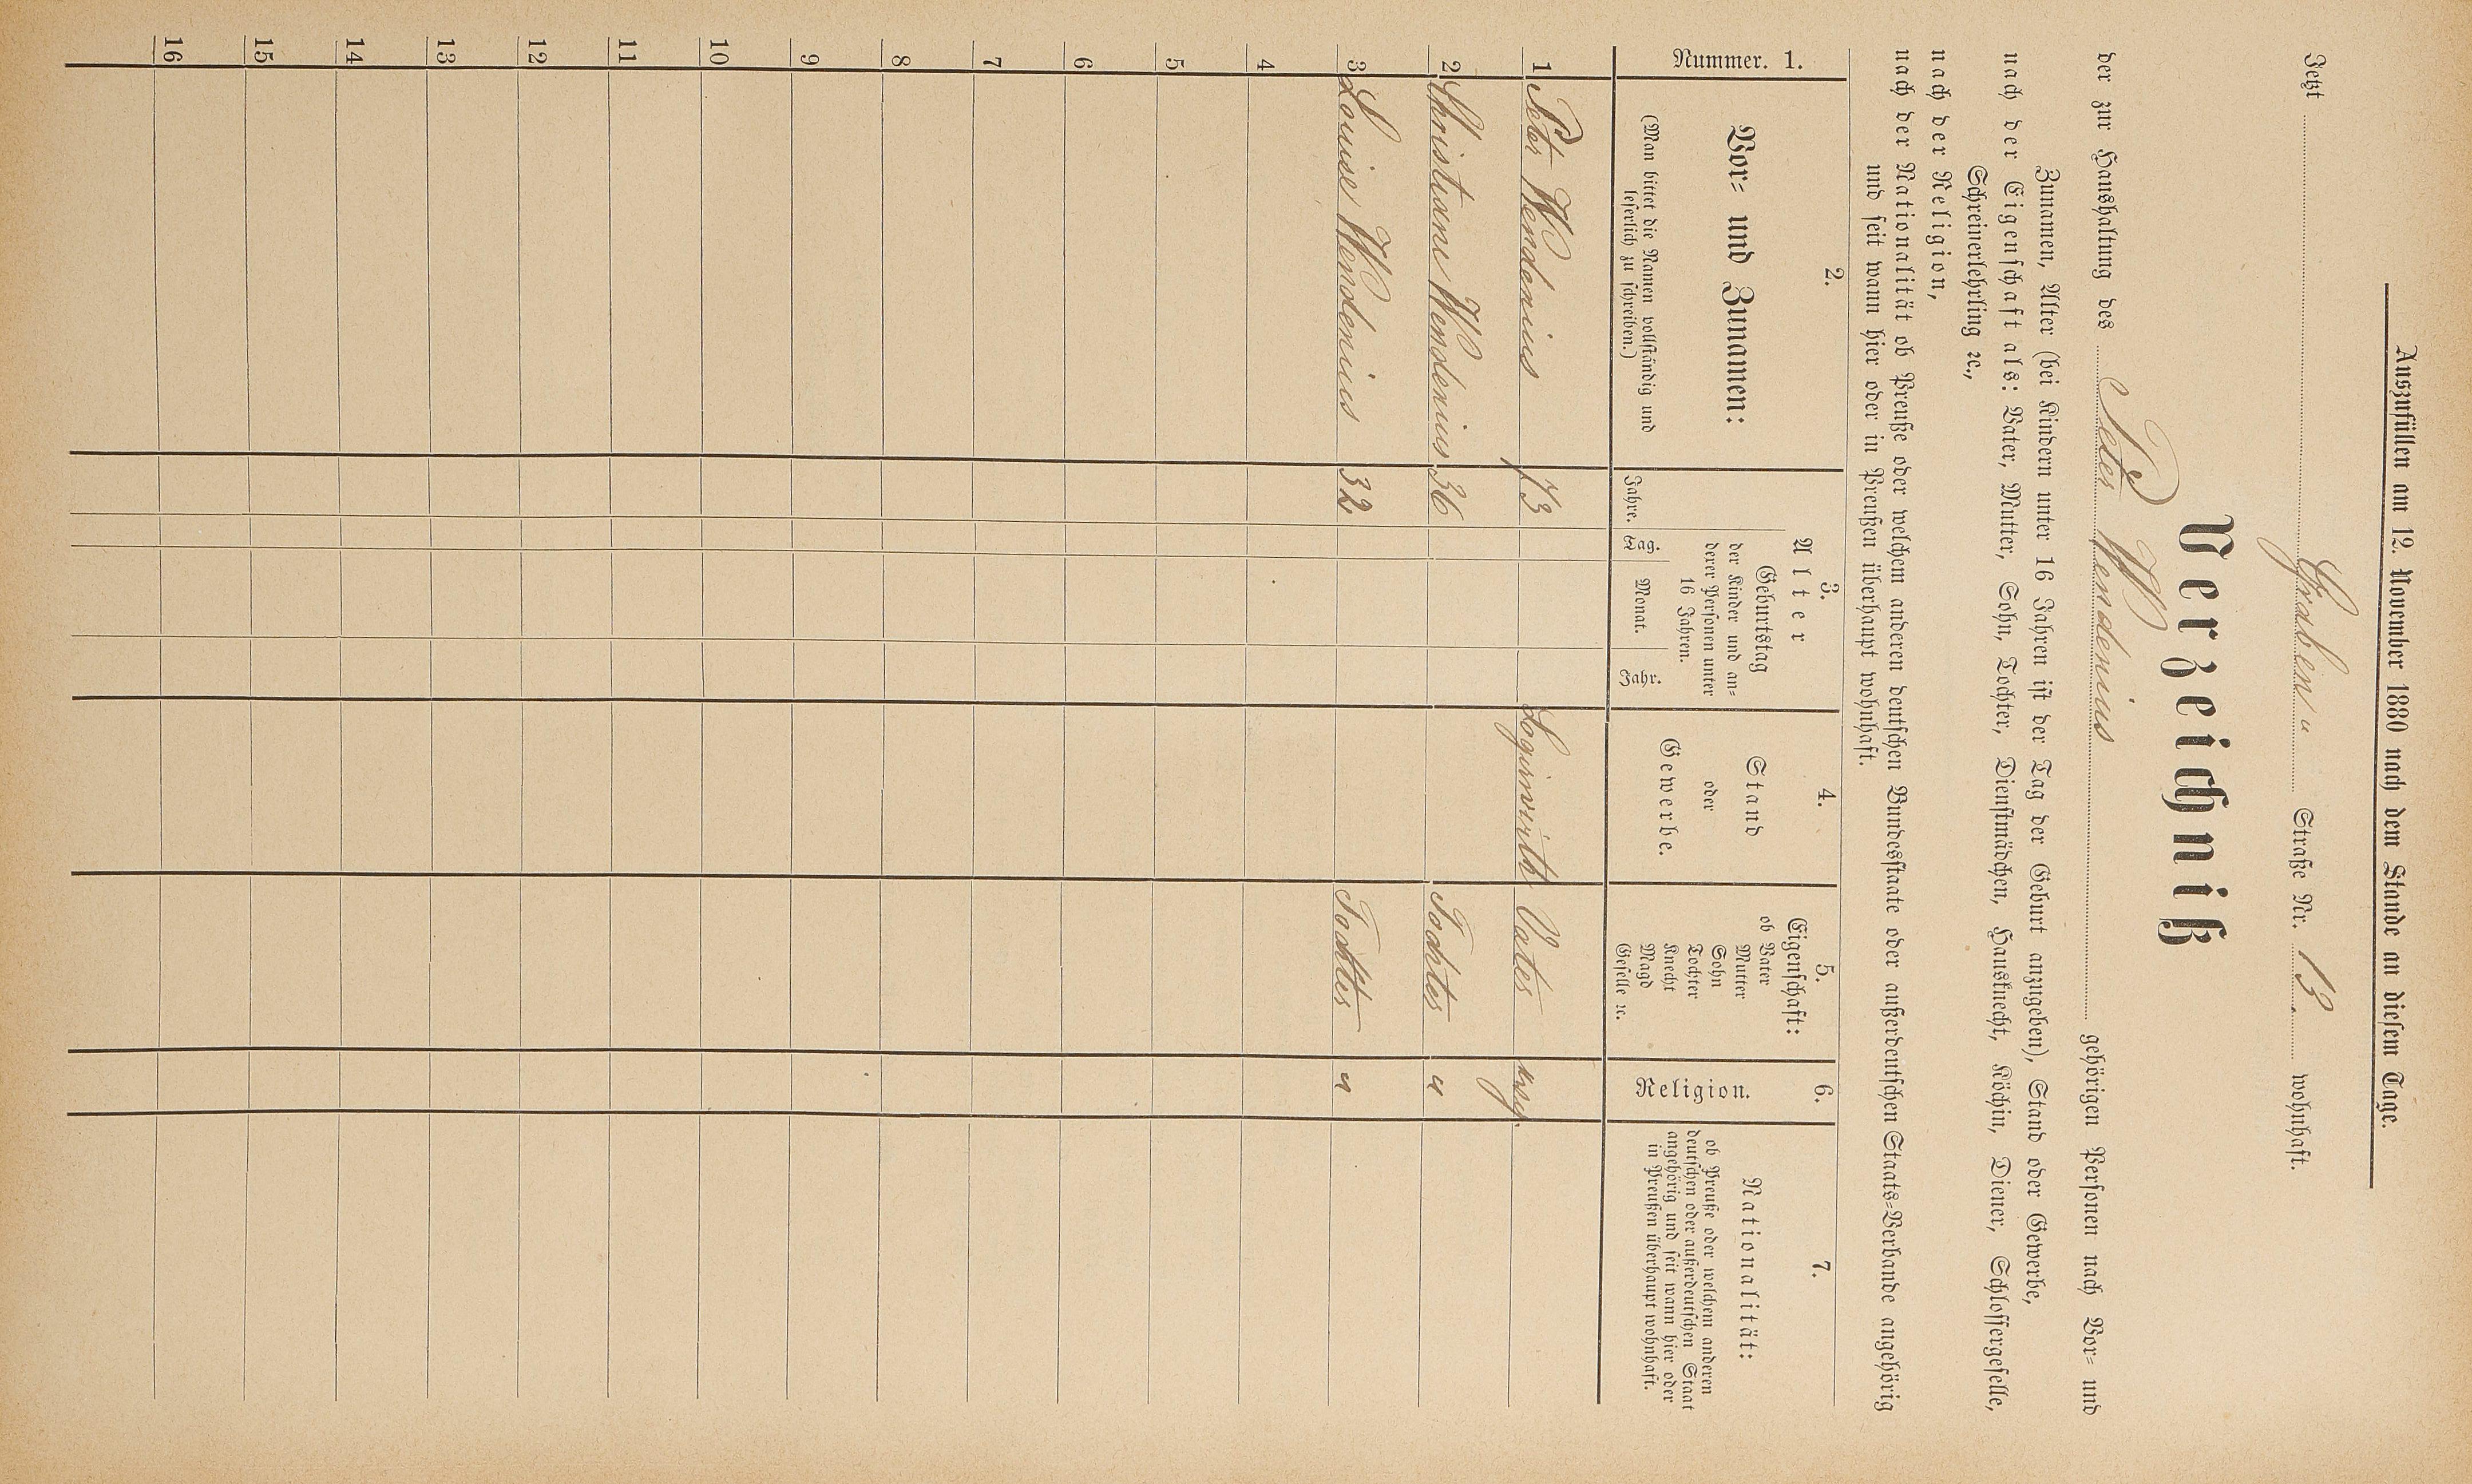 Auszufüllen am 12. November 1880 nach dem Stande an diesem Tage.
Jetzt Graben " Straße Nr. 13. wohnhaft.
Verzeichniß
der zur Haushaltung des Peter Wendenius gehörigen Personen nach Vor- und
Zunamen, Alter (bei Kindern unter 16 Jahren ist der Tag der Geburt anzugeben), Stand oder Gewerbe,
nach der Eigenschaft als: Vater, Mutter, Sohn, Tochter, Dienstmädchen, Hausknecht, Köchin, Diener, Schlossergeselle,
Schreinerlehrling ꝛc.,
nach der Religion,
nach der Nationalität ob Preuße oder welchem anderen deutschen Bundesstaate oder außerdeutschen Staats-Verbande angehörig
und seit wann hier oder in Preußen überhaupt wohnhaft.
Nummer. 1.
2.
Vor- und Zunamen:
(Man bittet die Namen vollständig und
leserlich zu schreiben.)
3.
Alter
Jahre.
Geburtstag
der Kinder und an-
derer Personen unter
16 Jahren.
Tag. Monat. Jahr.
4.
Stand
oder
Gewerbe.
5.
Eigenschaft:
ob Vater
Mutter
Sohn
Tochter
Knecht
Magd
Geselle ꝛc.
6.
Religion.
7.
Nationalität:
ob Preuße oder welchem anderen
deutschen oder außerdeutschen Staat
angehörig und seit wann hier oder
in Preußen überhaupt wohnhaft.
1 Peter Wendenius 73 Logiswirth Vater
2 Christiane Wendenius 36 Tochter "
3 Louise Wendenius 32 Tochter "
4
5
6
7
8
9
10
11
12
13
14
15
16